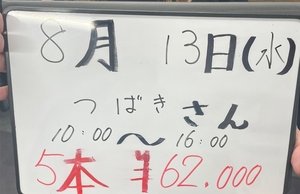 8月 13日(水)
つばきさん
10:00〜16:00
5本 ¥62.000